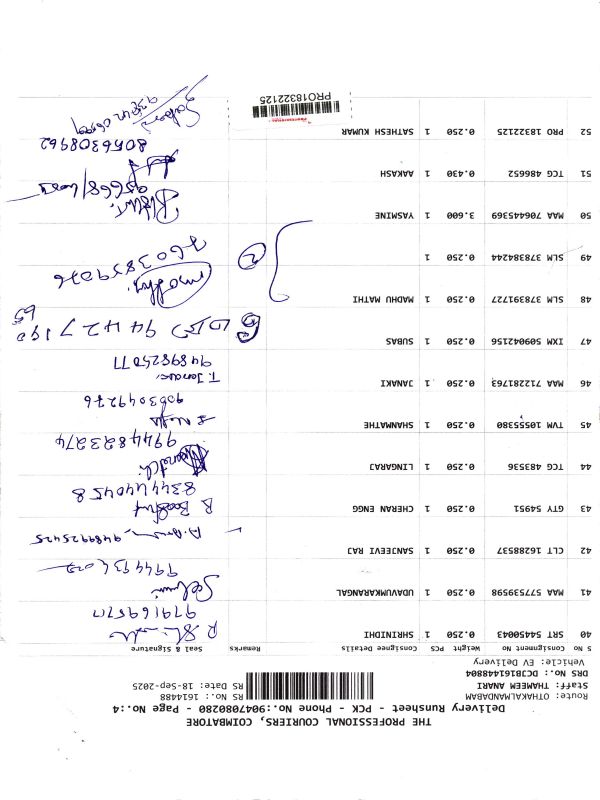 THE PROFESSIONAL COURIERS, COIMBATORE
Delivery Runsheet - PCK - Phone No.:9047080280 - Page No.:4
Route: OTHAKALMANDABAM
Staff: THAMEEM ANARI RS No.: 1614488
DRS No.: DCBI61448804 RS Date: 18-Sep-2025
Vehicle: EV Delivery
S No Consignment No Weight PCS Consignee Details Remarks Seal & Signature
40 SRT 54450043 0.250 1 SHRINIDHI
9791695717
41 MAA 577539598 0.250 1 UDAVUMKARANGAL
42 CLT 16288537 0.250 1 SANJEEVI RAJ 9489925425
43 GTY 54951 0.250 1 CHERAN ENGG
8344440458
44 TCG 483536 0.250 1 LINGARAJ
9944823274
45 TVM 10555380 0.250 1 SHANMATHE
9003049276
46 MAA 712281763 0.250 1 JANAKI
9489825077
47 IXM 509042156 0.250 1 SUBAS
48 SLM 378391727 0.250 1 MADHU MATHI
7603859076
49 SLM 378384244 0.250 1 2
50 MAA 706445369 3.600 1 YASMINE
51 TCG 486652 0.430 1 AAKASH
8056308962
52 PRO 18322125 0.250 1 SATHESH KUMAR
PRO18322125